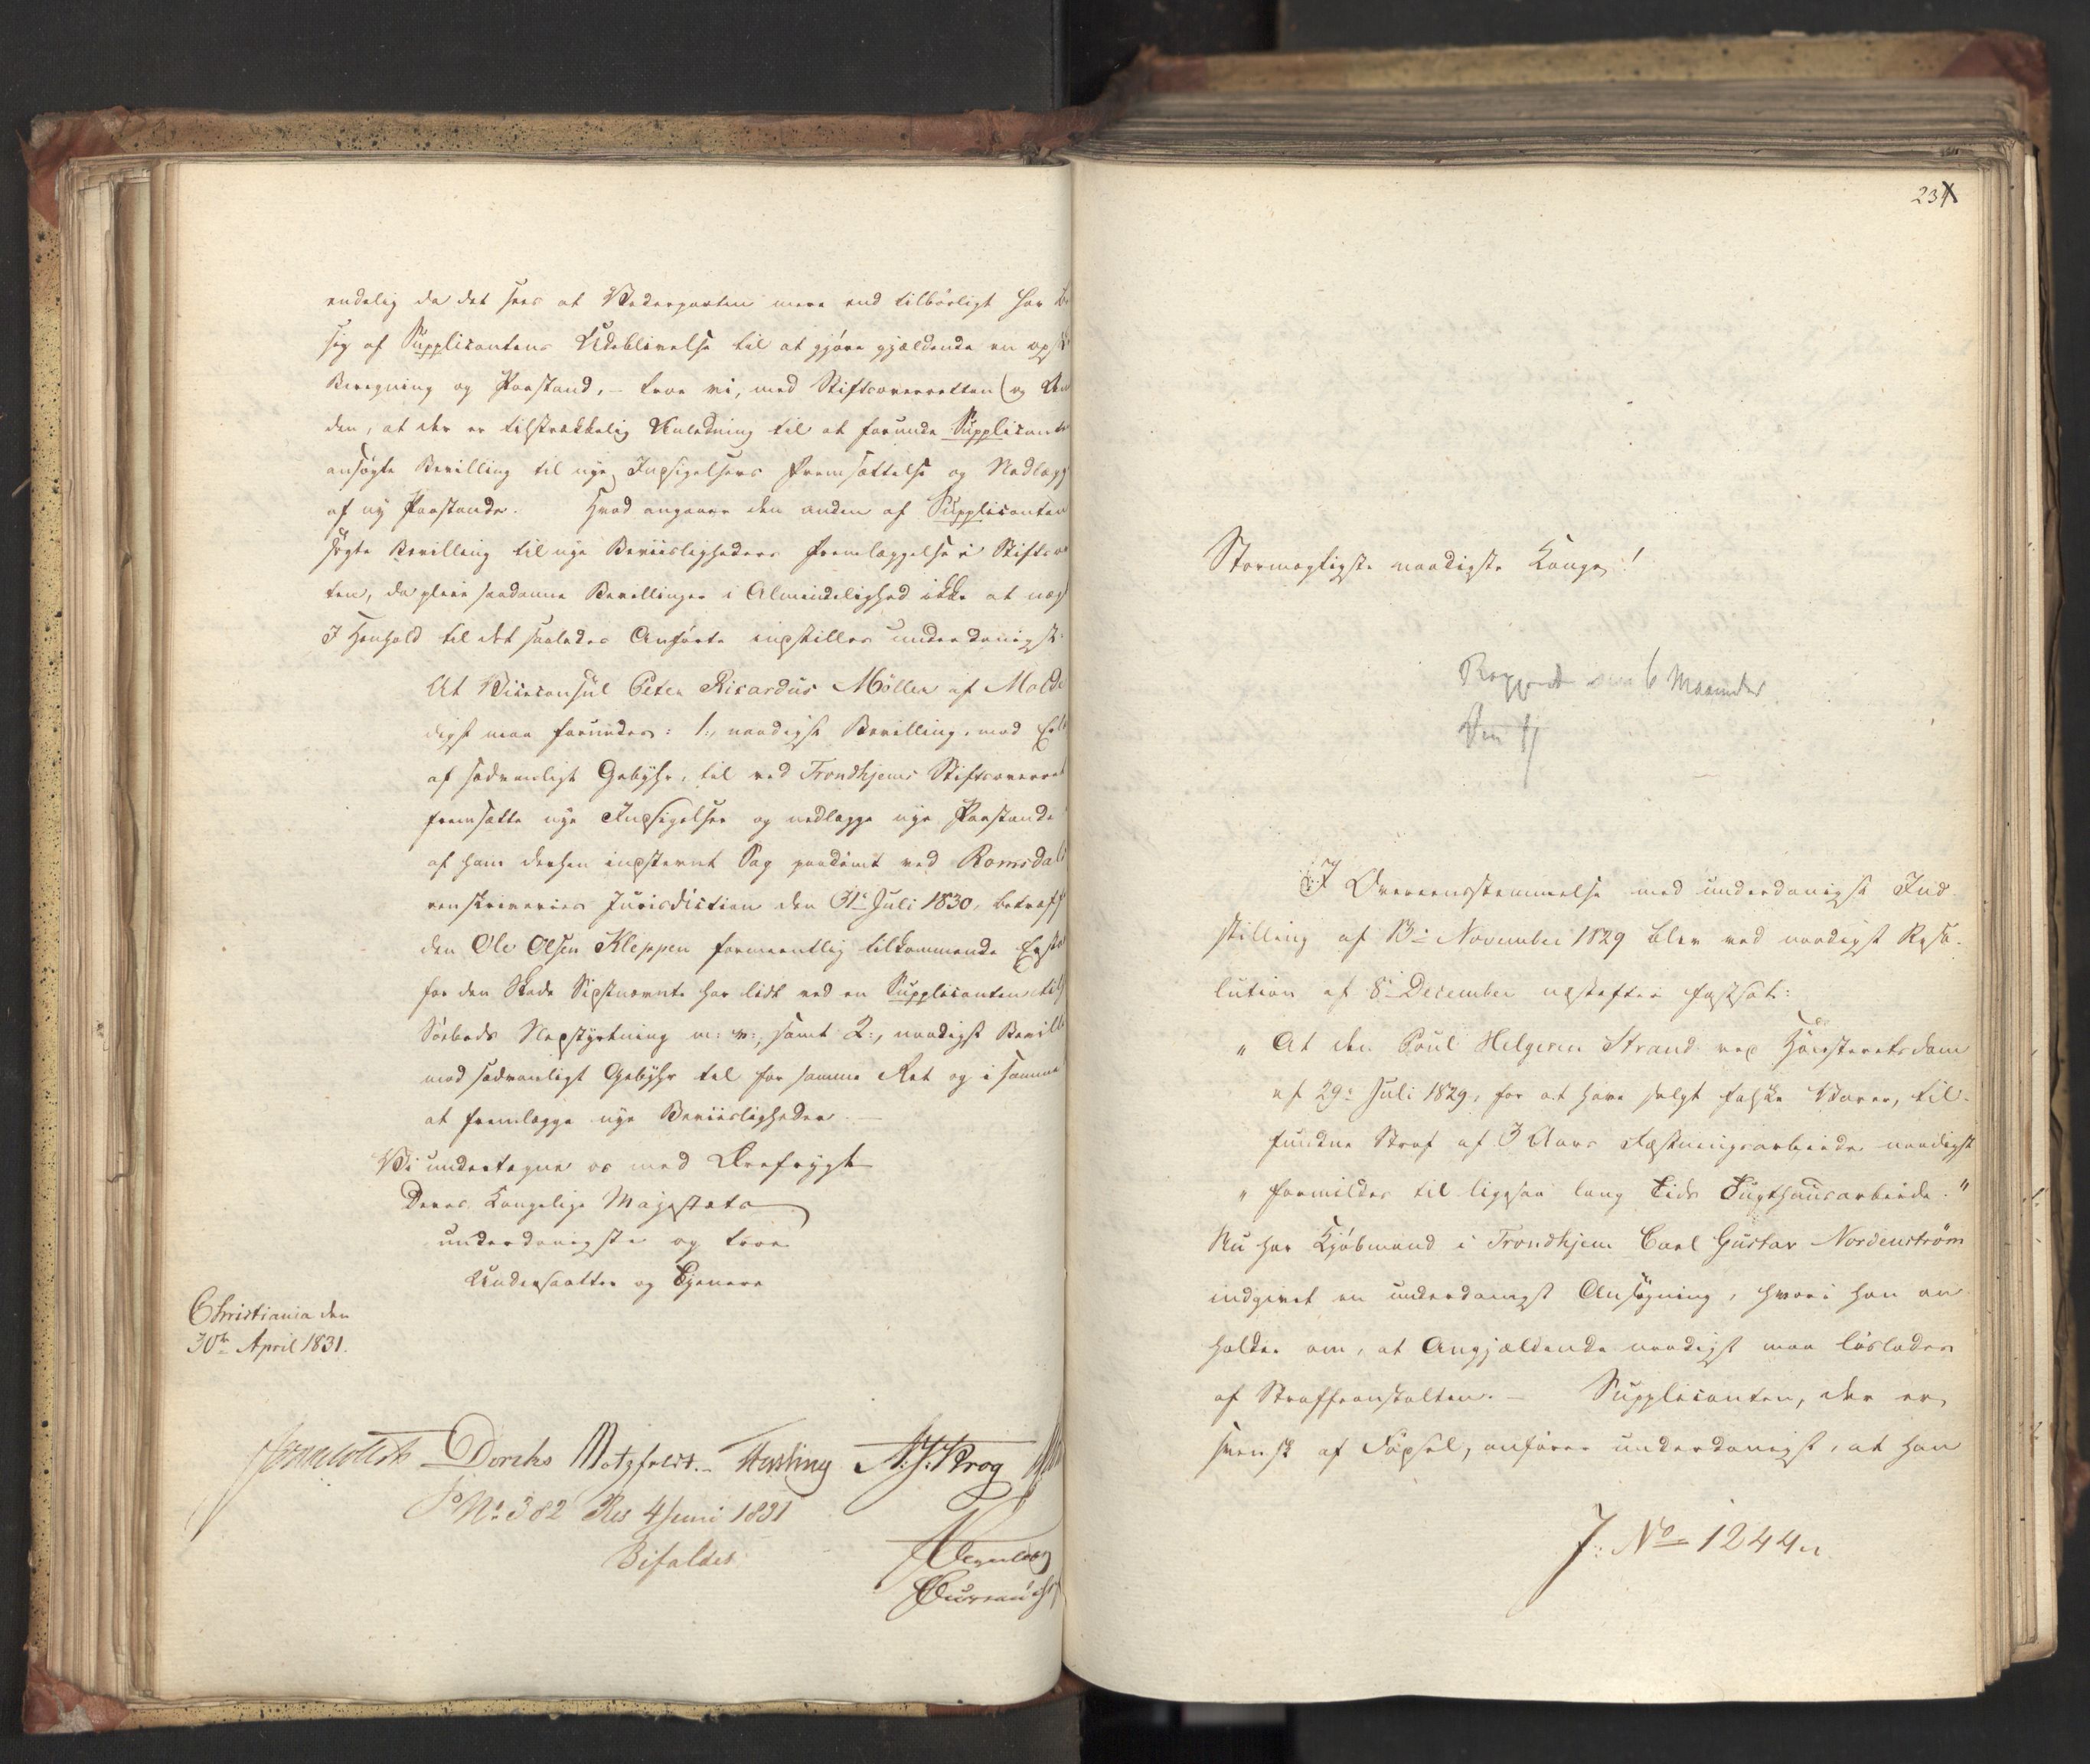 endelig da det sees at Vederparten mere end tilbørligt har be
sig af Supplicantens Udeblivelse til at gjøre gjældende en
Beregning og Paastand, - troe vi, med Stiftsoverretten (og
den, at der er tilstrækkelig Anledning til at forunde Supplicanten
ansøgte Bevilling til nye Indsigelsers Fremsættelse og Nedlægg
af ny Paastande. Hvad angaaer den anden af Supplicanten
søgte Bevilling til nye Beviisligheders Fremlæggelse i Stiftsov
ten, da pleie saadanne Bevillinger i Almindelighed ikke at næg
I Henhold til det saaledes Anførte indstilles underdanigst:
At Viceconsul Peter Ricardus Møller af Molde
digst maa forundes: 1:, naadigst Bevilling, mod Erl
af sædvanligt Gebyhr, til ved Trondhjems Stiftsoverret
fremsætte nye Indsigelser og nedlægge nye Paastande
af ham derhen indstevnt Sag paadømt ved Romsdals
renskriveries Jurisdiction den Juli 1830, betreff
den Ole Olsen Kleppen formeentlig tilkommende Ersta
for den Skade Sidstnævnte har lidt ved en Supplicanten tilh
Søebods Nedstyrtning m: v:, samt 2:, naadigst Bevill
mod sædvanligt Gebyhr til for samme Ret og i samme
at fremlægge nye Beviisligheder
Vi undertegne os med Ærefrygt
Deres Kongelige Majestæts
underdanigste og troe
Undersaatter og Tjenere
Christiania den
30te April 1831.
Diriks Motzfeldt. Fasting N. J. Krog
No 382 Res 4 Juni 1831
Bifaldes
Vogt
Bureauchef
234
Stormægtigste naadigste Konge!
6 Maaneder
I Overeensstemmelse med underdanigst Ind-
stilling af 13de November 1829 blev ved naadigst Reso-
lution af 8de December næstefter fastsat:
" At den Poul Helgesen Strand ved Høiesteretsdom
af 29de Juli 1829, for at have solgt falske Varer, til-
fundne Straf af 3 Aars Fæstningsarbeide naadigst
" formildes til ligesaa lang Tids Tugthuusarbeide."
Nu har Kjøbmand i Trondhjem Carl Gustav Nordenstrøm
indgivet en underdanigst Ansøgning, hvori han an-
holder om, at Angjældende naadigst maa løslades
af Straffeanstalten. - Supplicanten, der er
svensk af Fødsel, anfører underdanigst, at han
J: No 1244